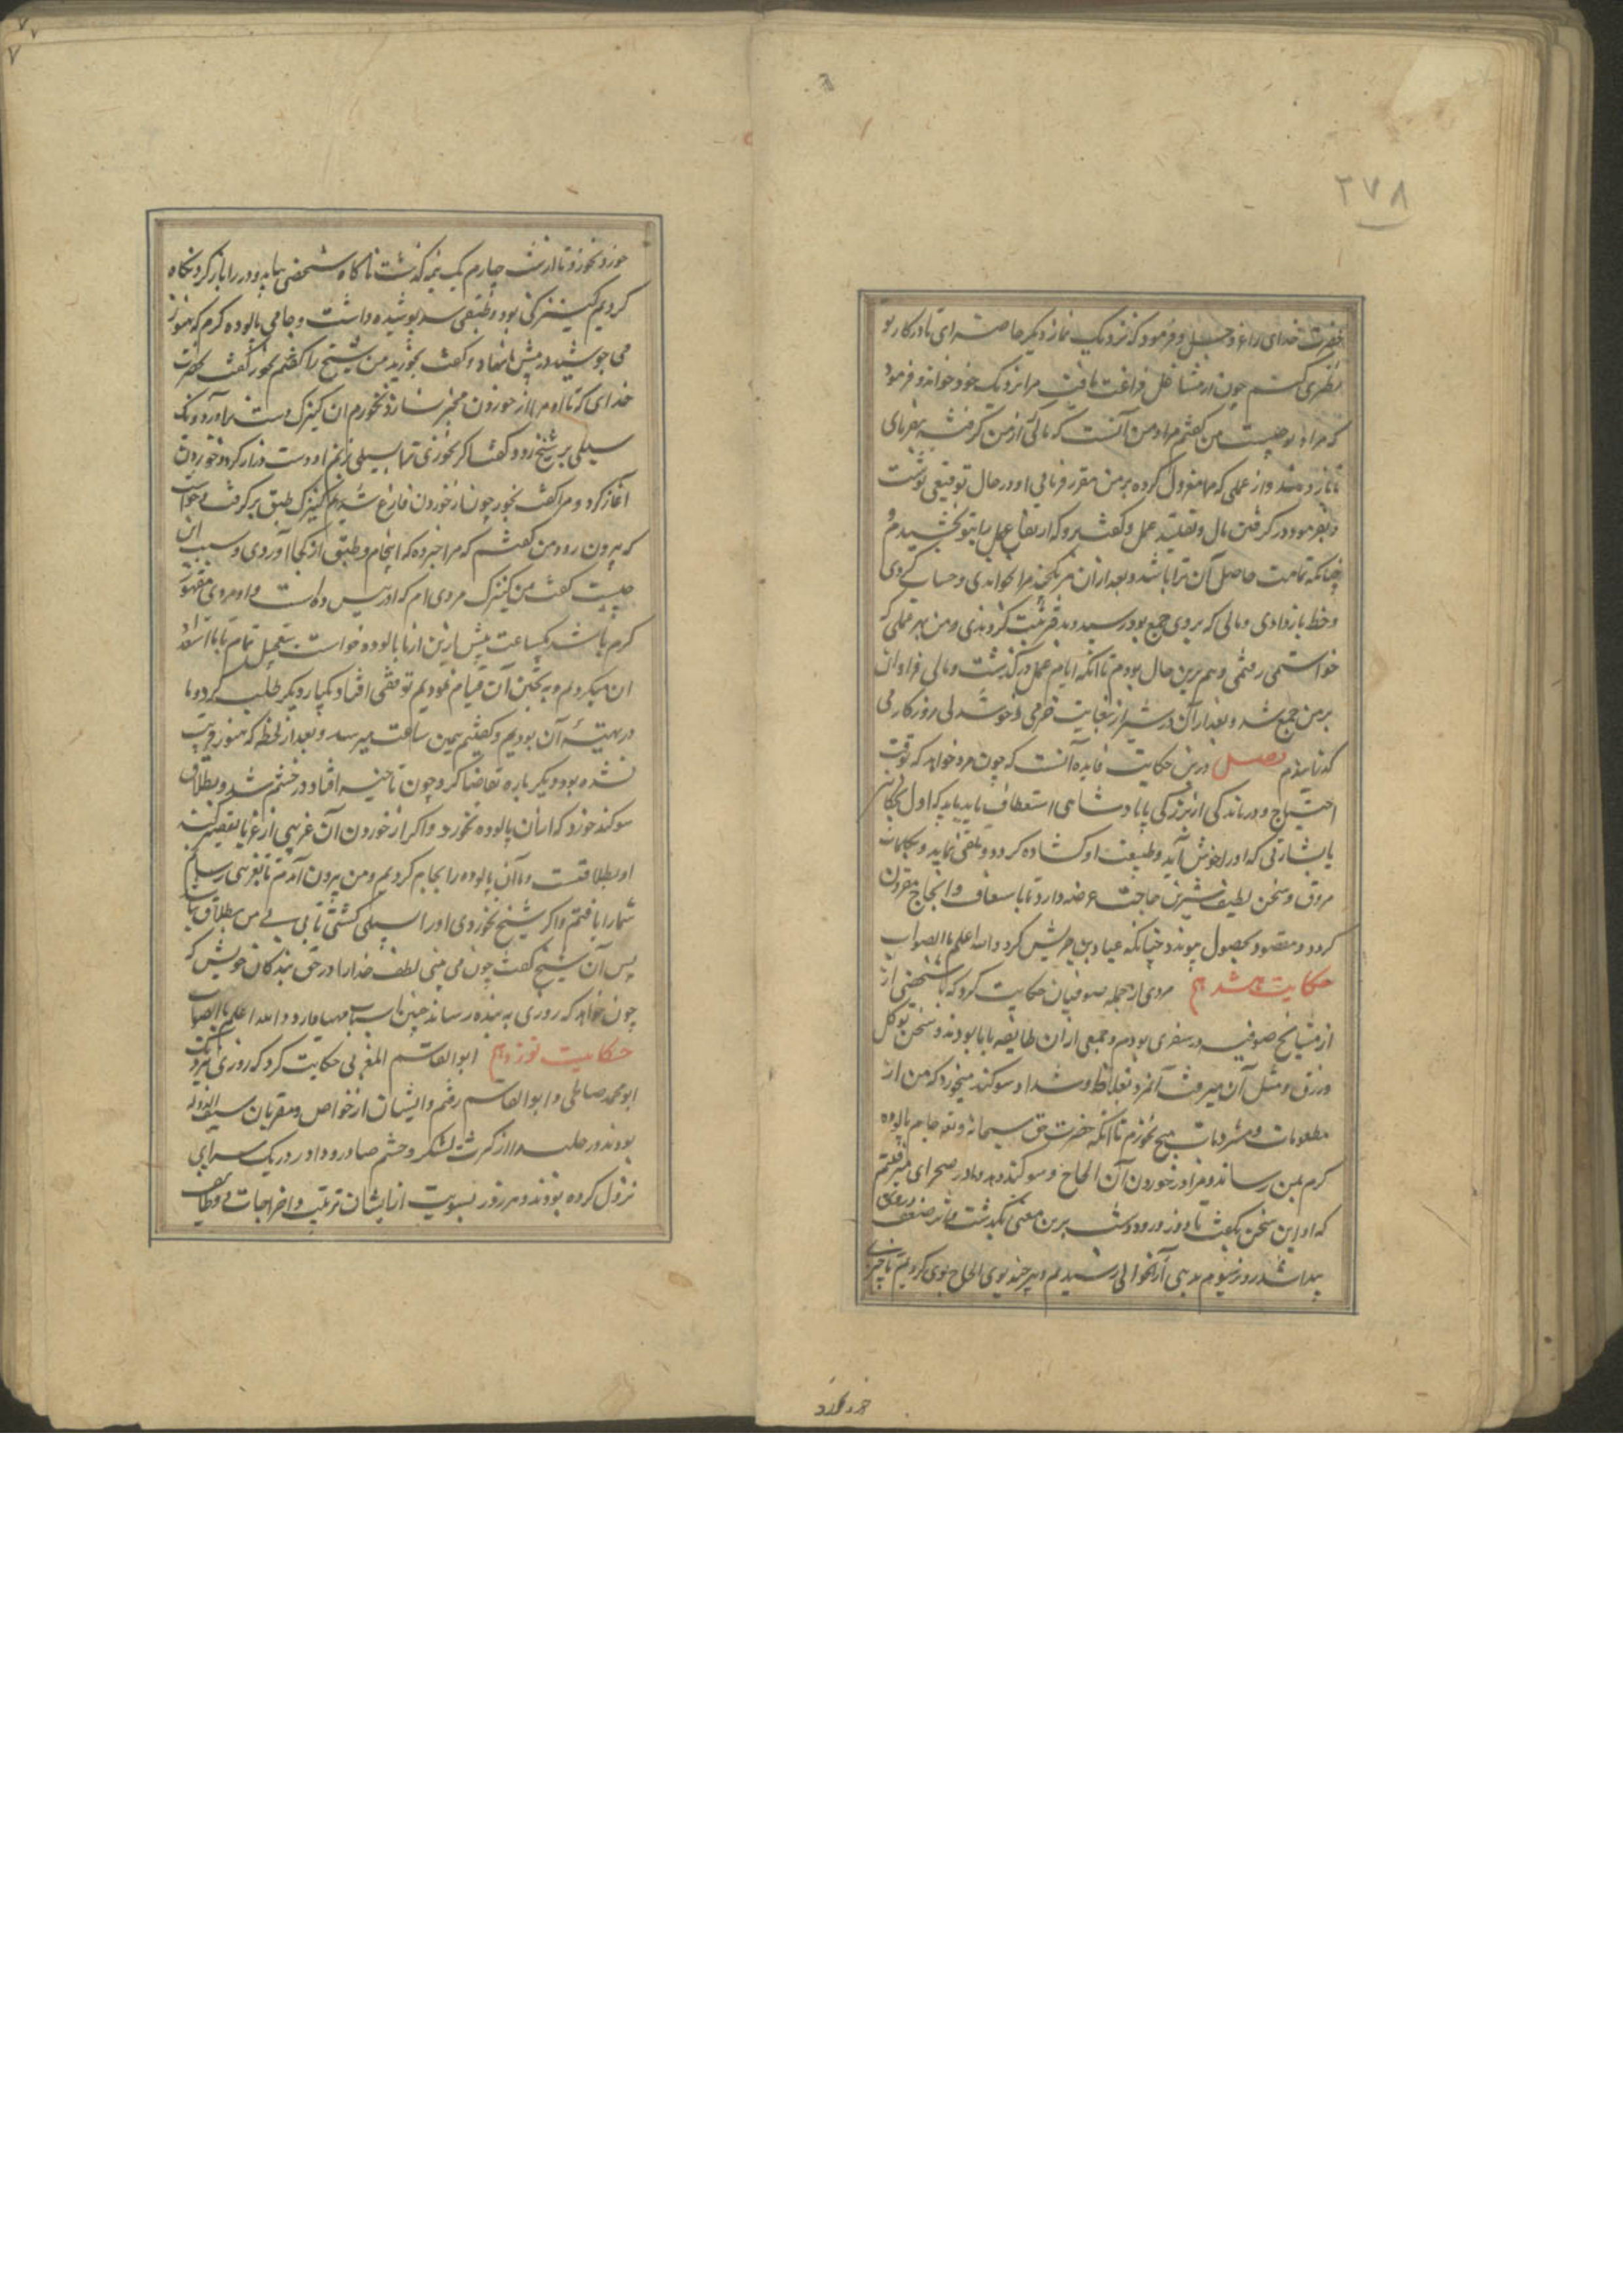 ۲۷۸
حضرت خدای را عز و جل و فرمود که نزدیک نماز دیگر حاضر ای تا در کار تو
نظری کنیم چون از مشاغل فراغت یافت مرا نزدیک خود خواند و فرمود
که مراد تو چیست من گفتم مراد من آنست که مالی که از من گرفته بفرمای
تا باز دهند و از عملی که مرا معزول کرده بر من مقرر فرمائی او در حال توقیعی نوشت
و بفرمود در کرفتن مال و تقلید عمل و کفت برو که ارتفاع عمل را بتو بخشیدم
چنانکه تمامت حاصل آن ترا باشد و بعد ازان هر
و خط بازدادی و مالی که بروی جمع بود رسید و من بهر عملی که
خواستمی رفتمی و هم برین حال بودم تا انکه ایام عمل درگذشت و مالی فراوان
بر من جمع شد و بعد از آن در شیراز بغایت خرمی و خوشدلی روزکار می
کذرانیدم فصل درین حکایت فایده آنست که چون مرد خواهد که بوقت
احتیاج و درماندگی از بزرکی یا پادشاهی استعطاف نماید باید که اول
یا بشارتی که او را خوش آید و طبیعت او کشاده کردد تلقی نماید و بکلمات
مروق و سخن لطیف شیرین حاجت عرضه دارد تا باسعاف و انجاح مقرون
کردد و مقصود بحصول پیوندد چنانکه عباد بن حریش کرد والله اعلم بالصواب
حکایت هشدهم مردی از جمله صوفیان حکایت کرد که با شخصی از
از مشایخ صوفیه در سفری بودم و جمعی ازان طایفه با ما بودند و سخن توکل
و رزق و مثل آن میرفت آنمرد بغلاظ و شداد سوکند میخورد که من از
مطعومات و مشروبات هیچ نخورم تا انکه حضرت حق سبحانه و تعالی جام پالوده
کرم بمن رساند و مرا در خوردن آن الحاح و سوکند دهد و ما در صحرای میرفتیم
که او این سخن بگفت تا دو روز و دو شب برین معنی بگذشت و اثر ضعف دروی
پیدا شد روز سیوم بدیهی آنحوالی رسیدیم و هر چند بوی الحاح بوی کردیم تا چیزی
خورد نخورد
خورد نخورد تا از شب چهارم یک نیمه گذشت ناکاه شخصی بیامد و در را باز کرد نکاه
کردیم کنیزکی بود و طبقی سرپوشیده داشت و جامی پالوده کرم که هنوز
می جوشید در پیش ما نهاد و کفت بخورید من شیخ را گفتم بخور کفت بحضرت
خدای که تا او مرا از خوردن مخیر نسازد نخورم ان کنیزک دست براورد و یک
سیلی بر شیخ زد و کفت اکر نخوری ترا سیلی زنم او دست دراز کرد و خوردن
آغاز کرد و مرا کفت بخور چون از خوردن فارغ شدیم کنیزک طبق برکرفت و خواست
که بیرون رود من کفتم که مرا خبر ده که این جام و طبق از کجا آوردی و سبب این
چیست کفت من کنیزک مردی ام که او رئیس ده است و او مردی متهور
کرم باشد یکساعت پیش ازین از ما پالوده خواست بتعجیل تمام تا ما استعداد
ان میکردیم و به پختن آن قیام نمودیم توقفی افتاد یکبار دیگر طلب کرد و ما
در تهیئه آن بودیم و کفتیم همین ساعت میرسد و بعد از لحظه که هنوز مرتب
نشده بود دیگر باره تقاضا کرد چون تاخیر افتاد در خشم شد و بطلاق
سوکند خورد که ازان پالوده نخورد و اکر از خوردن آن غریبی از غربا تقصیر کند
او بطلاقست و ما آن پالوده را بجام کردیم و من بیرون آمدم تا بغریبی رسانم
شما را یافتم و اکر شیخ نخوردی او را سیلی کشتی تا بی بی من بطلاق نیاید
پس آن شیخ کفت چون می بینی لطف خدا را در حق بندکان خویش که
چون خواهد که روزی به بنده رساند چنین اسباب مهیا دارد والله اعلم بالصواب
حکایت نوزدهم ابوالقاسم المغربی حکایت کرد که روزی نزدیک
ابو محمد صلحی و ابوالقاسم رفتم و ایشان از خواص و مقربان سیف الدوله
بودند در حلب از کثرت لشکر و حشم صادر و وارد در یک سرای
نزول کرده بودند و هر روز بنوبت از ایشان ترتیب و اخراجات و وظایف